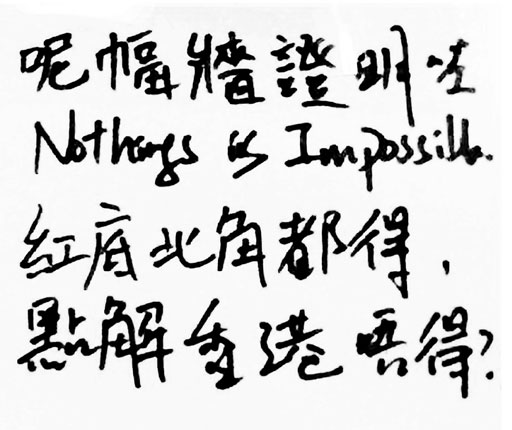 呢幅牆證明咗
Nothings is Impossible.
紅底北角都得，
點解香港唔得？